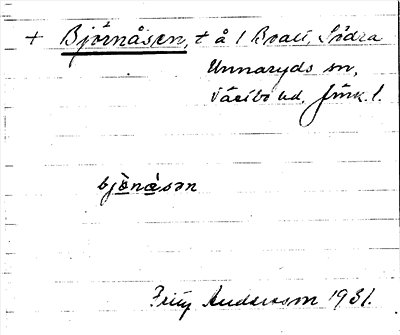 + Björnåsen, t å 1 Boall, Södra
Unnaryds sn,
Västbo hd. Jönk. l.
bjönåsən
Fritz Andersson 1931.